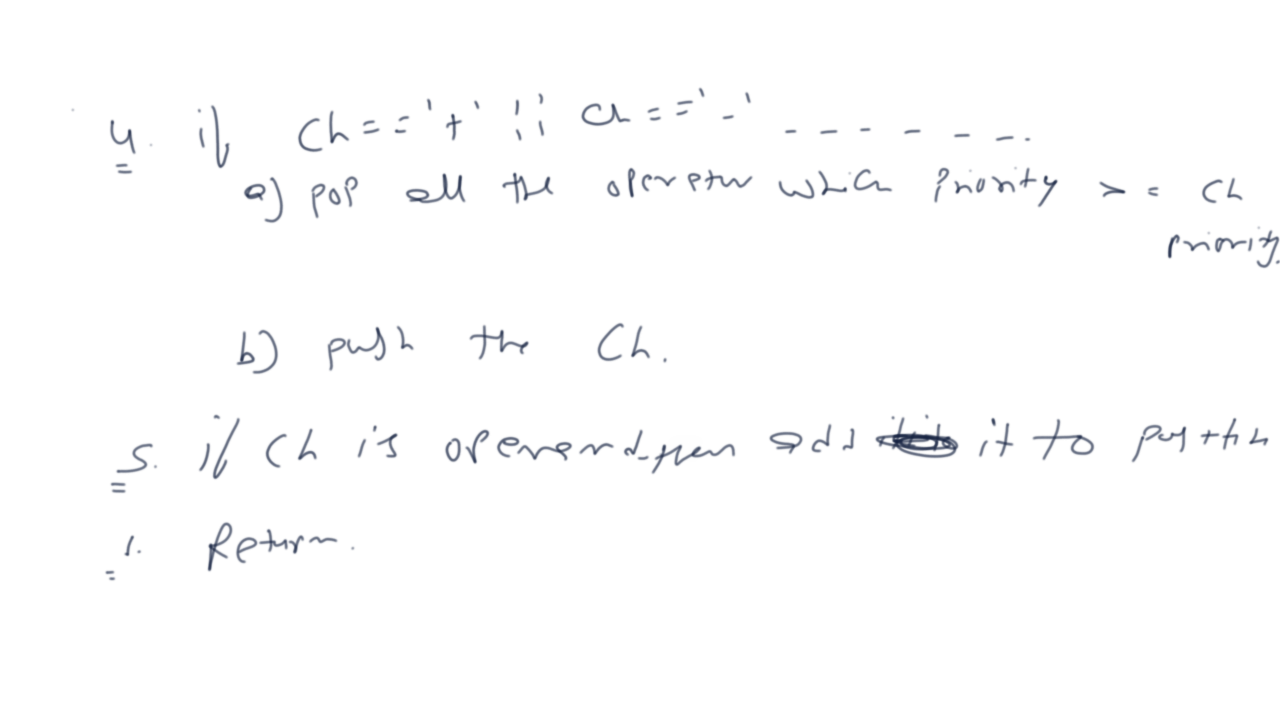 4. if Ch=='+' || Ch=='-' -------.
a) pop all the operator which priority >= Ch
priority.
b) push the Ch.
5. if Ch is operend then add it to
1. Return.